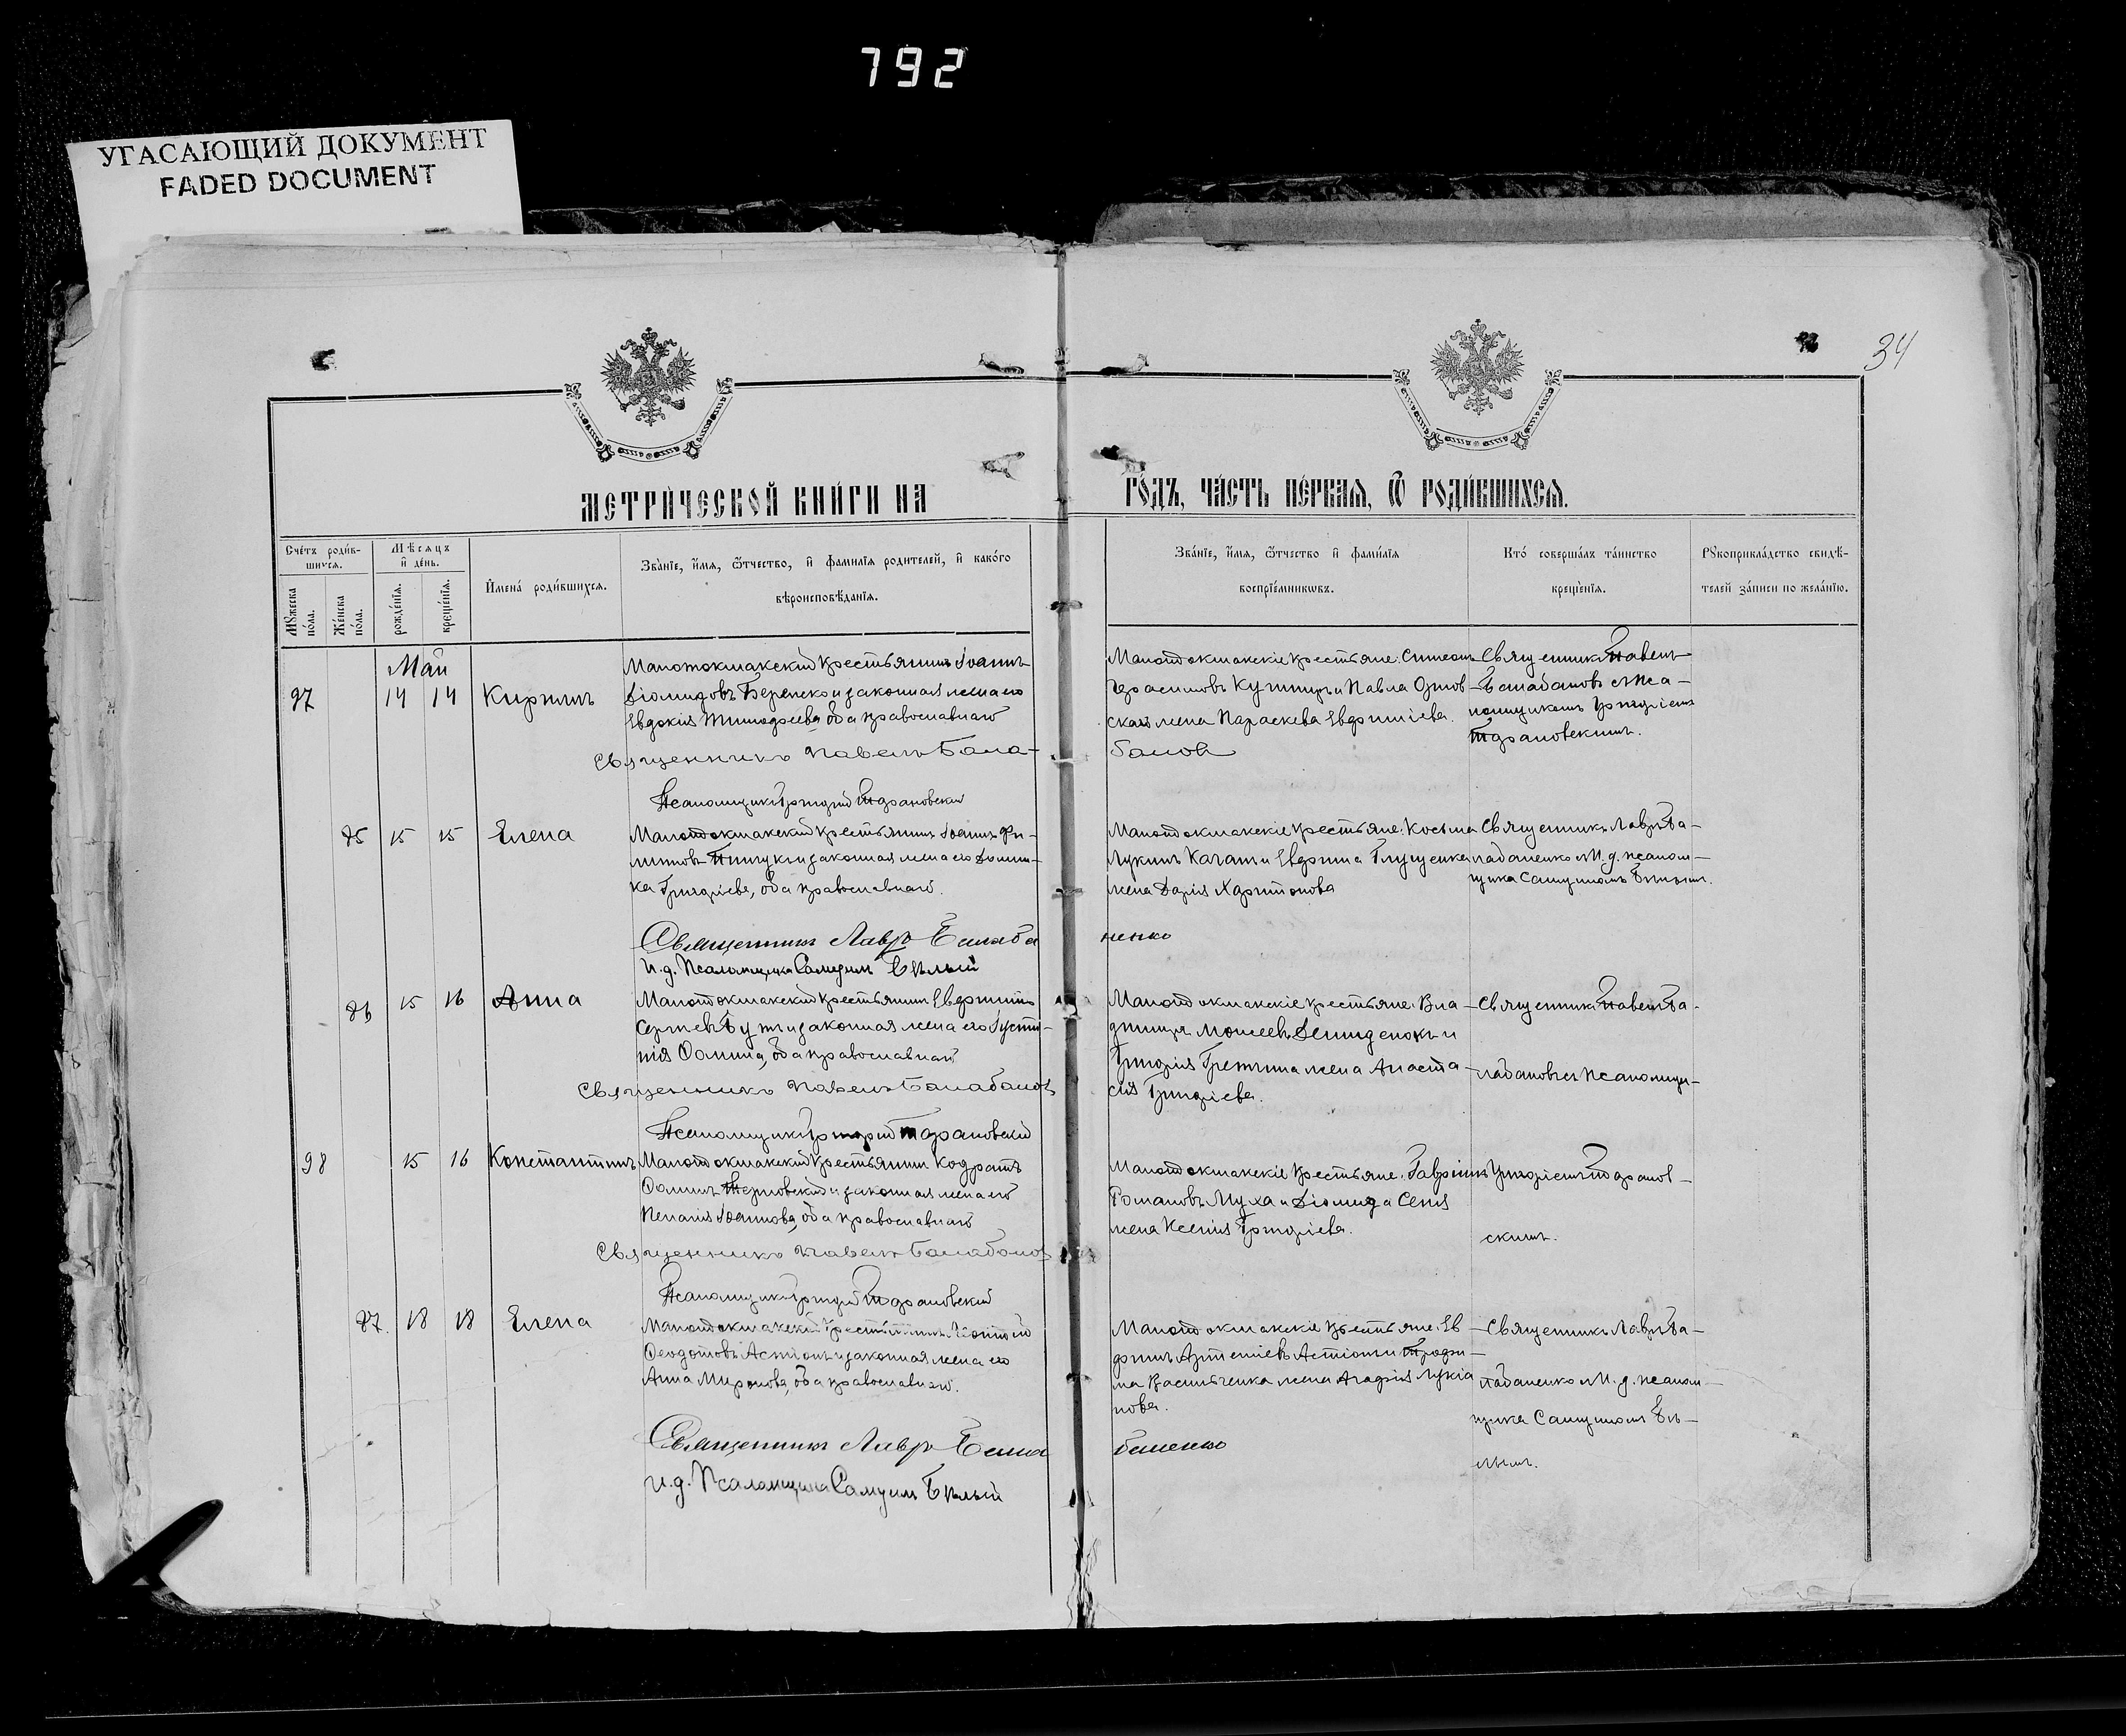 792
УГАСАЮЩИЙ ДОКУМЕНТ
FADED DOCUMENT
34
МЕТРИЧЕСКОЙ КНИГИ НА
ГОДЪ, ЧАСТЬ ПЕРВАЯ, Ѿ РОДИВШИХСЯ.
Счетъ родив-
шихся.
Мѣсяцъ
и день.
Мужеска
пола.
Женска
пола.
рожденія.
крещенія.
Имена родившихся.
Званіе, имя, ѿчество, и фамилія родителей, и какого
вѣроисповѣданія.
Званіе, имя, ѿчество и фамилія
воспріемниковъ.
Кто совершалъ таинство
крещенія.
Рукоприкладство свидѣ-
телей записи по желанію.
Май
97 14 14 Кириллъ
Малотокмакскій крестьянинъ Іоаннъ
Діомидовъ Береско и законная жена его
Евдокія Тимофеева, оба православнаго
Священникъ Павелъ Бала-
бановъ
Псаломщикъ Григорій Тарановскій
Малотокмакскіе крестьяне: Симеонъ
Герасимовъ и Павла
жена Параскева Евфиміева.
Священникъ Павелъ
Балабановъ съ Пса-
ломщикомъ Григоріемъ
Тарановскимъ.
85 15 15 Елена
Малотокмакскій крестьянинъ Іоаннъ Фи-
липповъ и законная жена его Домни-
ка Григоріева, оба православнаго.
Священникъ Лавръ Балаба
ненко
И.д. Псаломщика Самуилъ Бѣлый
Малотокмакскіе крестьяне: Косьма
Лукинъ и Евфима Глущенка
жена Дарія Харитонова
Священникъ Лавръ Ба-
лабаненко съ И.д. псалом-
щика Самуиломъ Бѣлымъ.
86 15 16 Анна
Малотокмакскій крестьянинъ Евфимій
Сергіевъ и законная жена его Іусти-
нія Фомина, оба православнаго
Священникъ Павелъ Балабановъ
Псаломщикъ Григорій Тарановскій
Малотокмакскіе крестьяне: Вла-
диміръ Моисеевъ Демиденокъ и
Григорія жена Анаста-
сія Григоріева.
Священникъ Павелъ Ба-
лабановъ съ Псаломщи-
98 15 16 Константинъ
Малотокмакскій крестьянинъ Кодратъ
Фоминъ и законная жена его
Пелагія Іоаннова, оба православнаго
Священникъ Павелъ Балабановъ
Псаломщикъ Григорій Тарановскій
Малотокмакскіе крестьяне: Гавріилъ
Романовъ Муха и Діомида
жена Ксенія Григоріева.
Григоріемъ Таранов-
скимъ.
87. 18 18 Елена
Малотокмакскій крестьянинъ Леонтій
Феодотовъ Астіонъ и законная жена его
Анна Миронова, оба православнаго.
Священникъ Лавръ Бала
баненко
И.д. Псаломщика Самуилъ Бѣлый
Малотокмакскіе крестьяне: Ев-
фимъ Артеміевъ Астіонъ и Трофи-
ма Васильченка жена Агафія Лукіа
нова.
Священникъ Лавръ Ба-
лабаненко съ И.д. псалом-
щика Самуиломъ Бѣ-
лымъ.